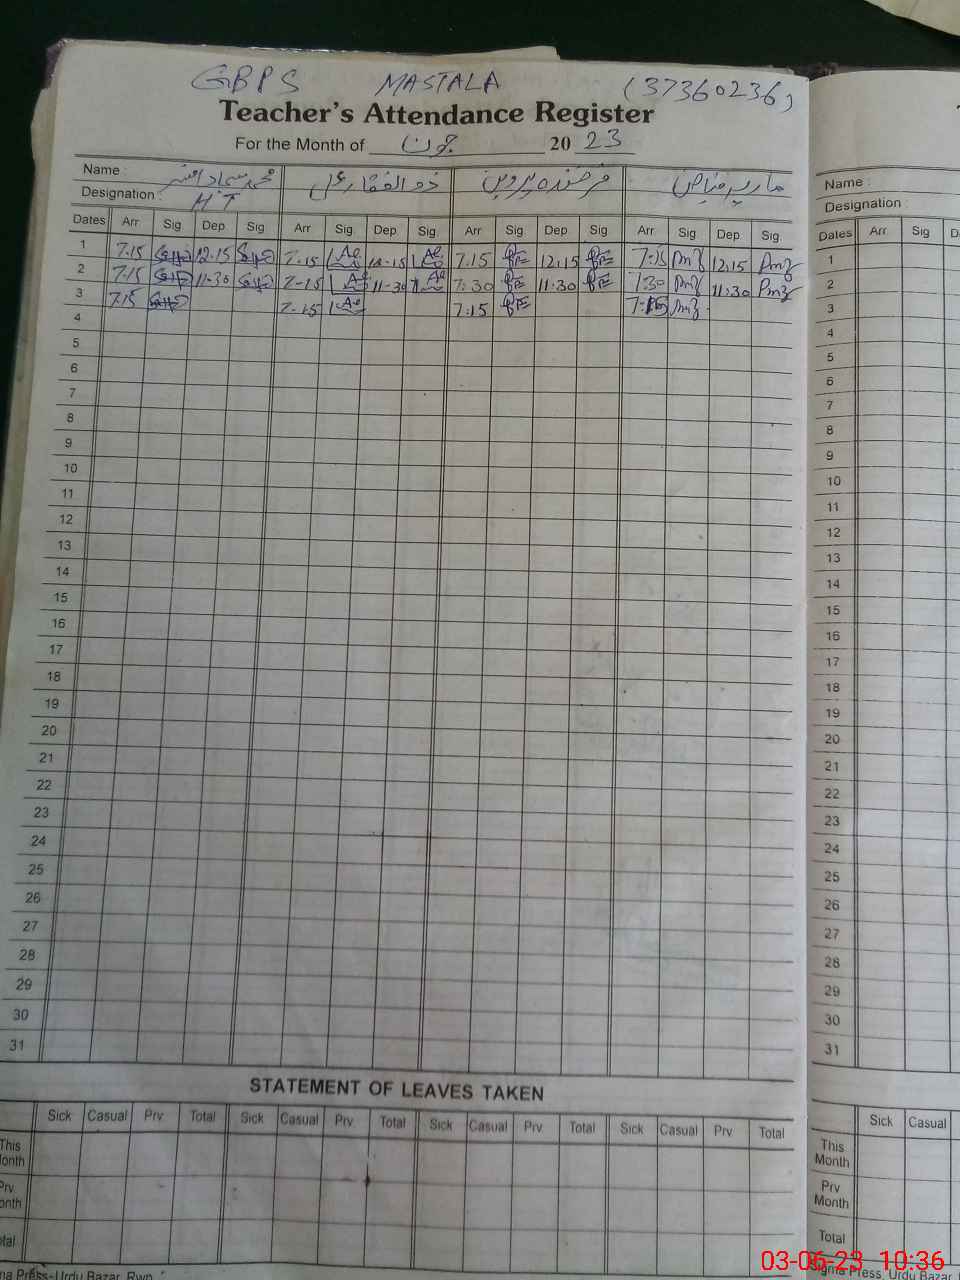 GBPS MASTALA (37360236)
Teacher's Attendance Register
For the Month of جون 20 23
Name : ذوالفقار علی فرخندہ پروین ماریہ فیاض
Designation : HT
Dates Arr Sig Dep Sig Arr Sig Dep Sig Arr Sig Dep Sig Arr Sig Dep Sig
1 7.15 12.15 7.15 12.15 7.15 12:15 7:15 12:15
2 7.15 11.30 7-15 11-30 7:30 11:30 7:30 11:30
3 7.15 7-15 7:15 7:15
4
5
6
7
8
9
10
11
12
13
14
15
16
17
18
19
20
21
22
23
24
25
26
27
28
29
30
31
STATEMENT OF LEAVES TAKEN
Sick Casual Prv Total Sick Casual Prv Total Sick Casual Prv Total Sick Casual Prv Total
This Month
Prv Month
Total
Press, Urdu Bazar, Rwp.
Name :
Designation :
Dates Arr Sig
1
2
3
4
5
6
7
8
9
10
11
12
13
14
15
16
17
18
19
20
21
22
23
24
25
26
27
28
29
30
31
Sick Casual
This Month
Prv Month
Total
Sigma Press, Urdu Bazar
03-06-23 10:36